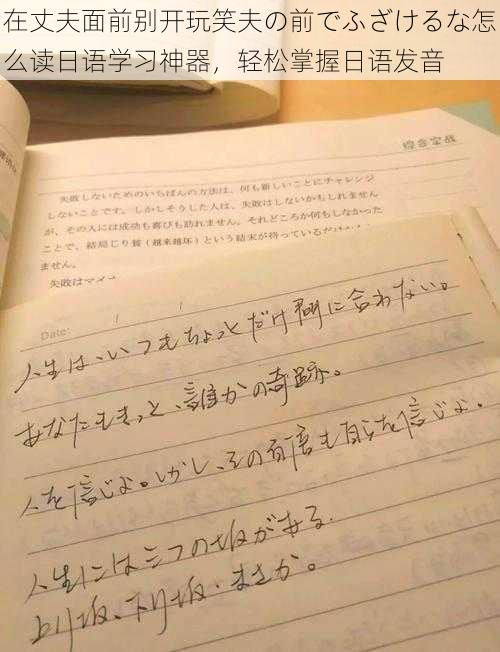 在丈夫面前别开玩笑夫の前でふざけるな怎
么读日语学习神器，轻松掌握日语发音
综合实战
失敗しないためのいちばんの方法は、何も新しいことにチャレンジ
しないことです。しかしそうした人は、失敗はしないかもしれません
が、その人には成功も喜びも訪れません。それどころか何もしなかった
ことで、結局じり貧（越来越坏）という結末が待っているだけ
ません。
失敗はマイナ
Date:
人生は、いつもちょっとだけ間に合わない。
あなたもきっと、誰かの奇跡。
人を信じよ。しかし、その百倍も自らを信じよ。
人生には三つの坂がある.
上り坂、下り坂、まさか。